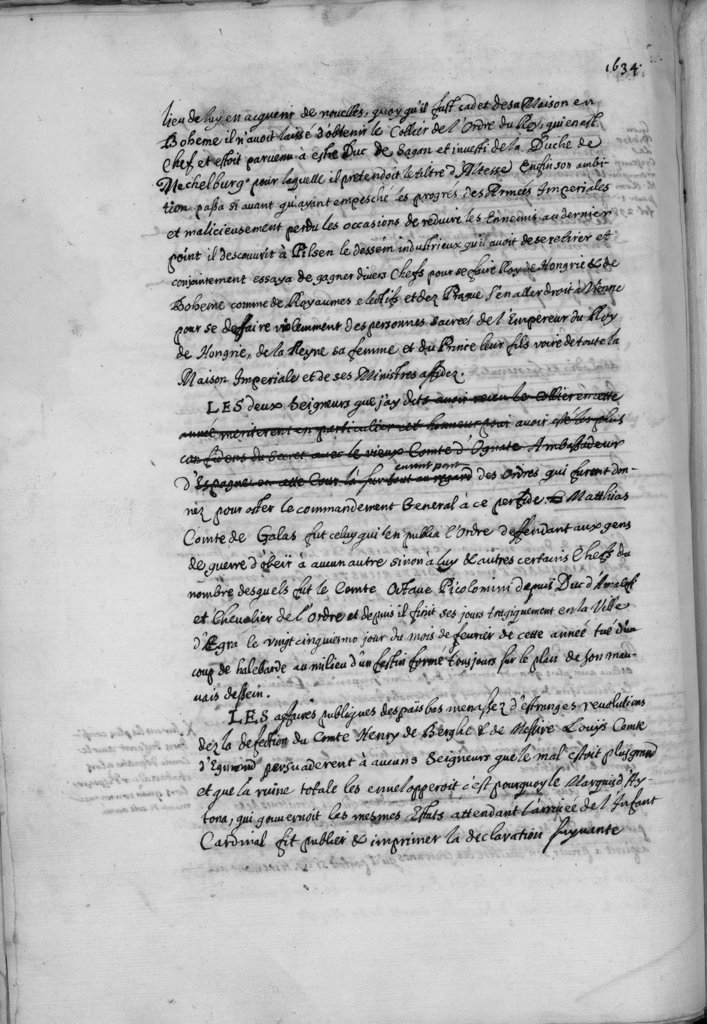 1634.
lieu de luy en acquerir de nouvelles, quoy qu'il fust cadet de sa Maison en
Boheme il n'avoit laissé d'obtenir le Collier de l'Ordre du Roy, qui en est
Chef et estoit parvenu à estre Duc de Sagan et investi de la Duché de
Mechelburg pour laquelle il pretendoit le tiltre d'Altesse Enfin son ambi-
tion passa si avant qu'ayant empesché les progres des Armées Imperiales
et malicieusement perdu les occasions de reduire les Ennemis au dernier
point il descouvrit à Pilsen le dessein industrieux qu'il avoit de se retirer et
conjointement essaya de gagner divers Chefs pour se faire Roy de Hongrie & de
Boheme comme de Royaumes electifs et dez Prague s'en aller droit à Vienne
pour se deffaire violemment des personnes sacrées de l'Empereur du Roy
de Hongrie, de la Reyne sa femme et du Prince leur fils voire de toute la
Maison Imperiale et de ses Ministres affidez.
LES deux Seigneurs que j'ay dits avoir receu le Collier en cette
année meriterent en particulier cet honneur pour avoir esté les plus
confidens du secret avec le vieux Comte d'Ognate Ambassadeur
eurent part
d'Espagne en cette Cour là sur tout au regard des Ordres qui furent don-
nez pour oster le commandement General à ce perfide. Matthias
Comte de Galas fut celuy qui en publia l'Ordre deffendant aux gens
de guerre d'obeir à aucun autre sinon à luy & autres certains Chefs du
nombre desquels fut le Comte Octave Picolomini depuis Duc d'Amalfi
et Chevalier de l'Ordre et depuis il finit ses jours tragiquement en la Ville
d'Egra le vingt cinquiesme jour du mois de fevrier de cette année tué d'un
coup de halebarde au milieu d'un festin formé toujours sur le plan de son mau-
vais dessein.
LES affaires publiques des païs bas menassez d'estranges revolutions
dez la defection du Comte Henry de Berghe & de Messire Louys Comte
d'Egmond persuaderent à aucuns Seigneurs que le mal estoit plus grand
et que la ruine totale les envelopperoit c'est pourquoy le Marquis d'Ay-
tona, qui gouvernoit les mesmes Estats attendant l'arrivée de l'Infant
Cardinal fit publier & imprimer la declaration suyvante